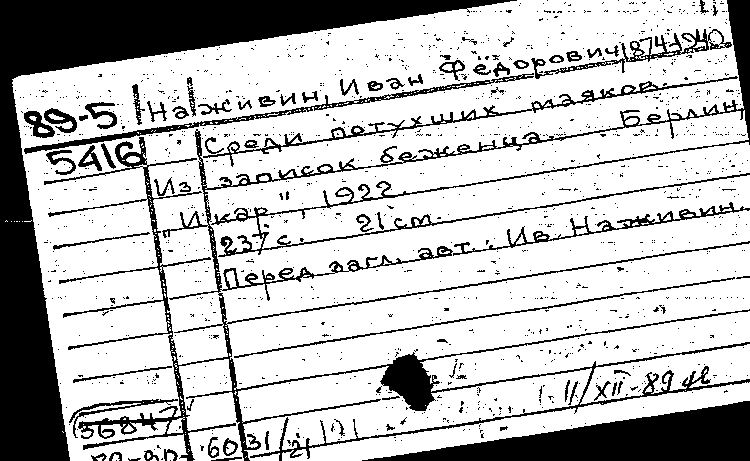 89-5 Наживин, Иван Фёдорович, 1874-1940
5416 Среди потухших маяков.
Из записок беженца. Берлин,
"Икар", 1922.
237 с. 21 см.
Перед загл. авт.: Ив. Наживин.
11/XII-89
36847
6031/21